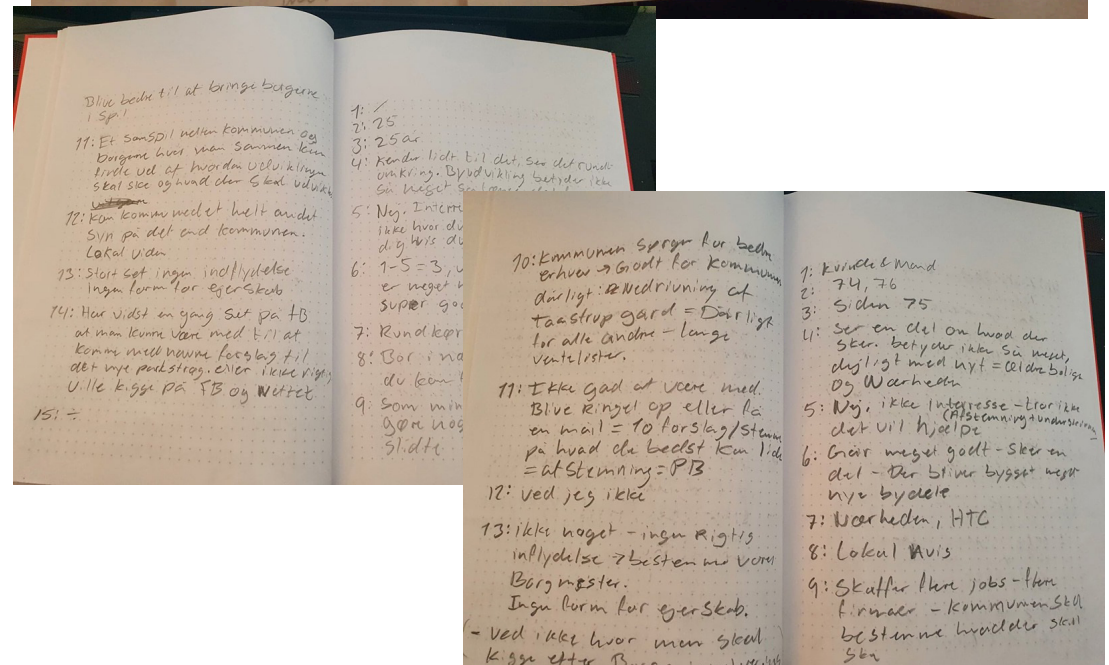 Blive bedre til at bringe borgerne
i spil
11: Et samspil mellem kommunen og
borgerne hvor man sammen kan
finde ud af hvordan udviklingen
skal ske og hvad der skal udvikle
12: kan komme med et helt andet
syn på det end kommunen.
Lokal viden
13: Stort set ingen indflydelse
ingen form for ejerskab
14: Har vidst en gang set på FB
at man kunne være med til at
komme med navne forslag til
det nye parkstrøg. eller ikke rigtig
ville kigge på FB og nettet.
15: ÷
1: /
2: 25
3: 25 år
4: Kender lidt til det, ser det rundt
omkring. Byudvikling betyder ikke
så meget
5: Nej. Intere
ikke hvor du
dig hvis du
6: 1-5 = 3, u
er meget
super go
7: Rundkør
8: Bor i næ
du kan
9: Som min
gøre nog
slidte
10: Kommunen sørger for bedre
erhverv → Godt for kommunen
dårligt: Nedrivning af
Taastrup gård = Dårligt
for alle andre - lange
ventelister.
11: Ikke gad at være med.
Blive Ringet op eller få
en mail = 10 forslag/stemme
på hvad du bedst kan lide
= afstemning = PB
12: ved jeg ikke
13: ikke noget - ingen Rigtig
inflydelse → bestemmer vores
Borgmester.
Ingen form for ejerskab.
(- ved ikke hvor man skal
kigge efter
1: Kvinde & Mand
2: 74, 76
3: Siden 75
4: Ser en del om hvad der
sker. betyder ikke så meget,
dejligt med nyt = ældrebolige
og Nærheden
5: Nej, ikke Interesse - tror ikke
(Afstemning + underskrivning)
det vil hjælpe
6: Går meget godt - sker en
del - Der bliver bygget meget
nye bydele
7: Nærheden, HTC
8: Lokal Avis
9: Skaffer flere jobs - flere
firmaer - kommunen skal
bestemme hvad der skal
ske